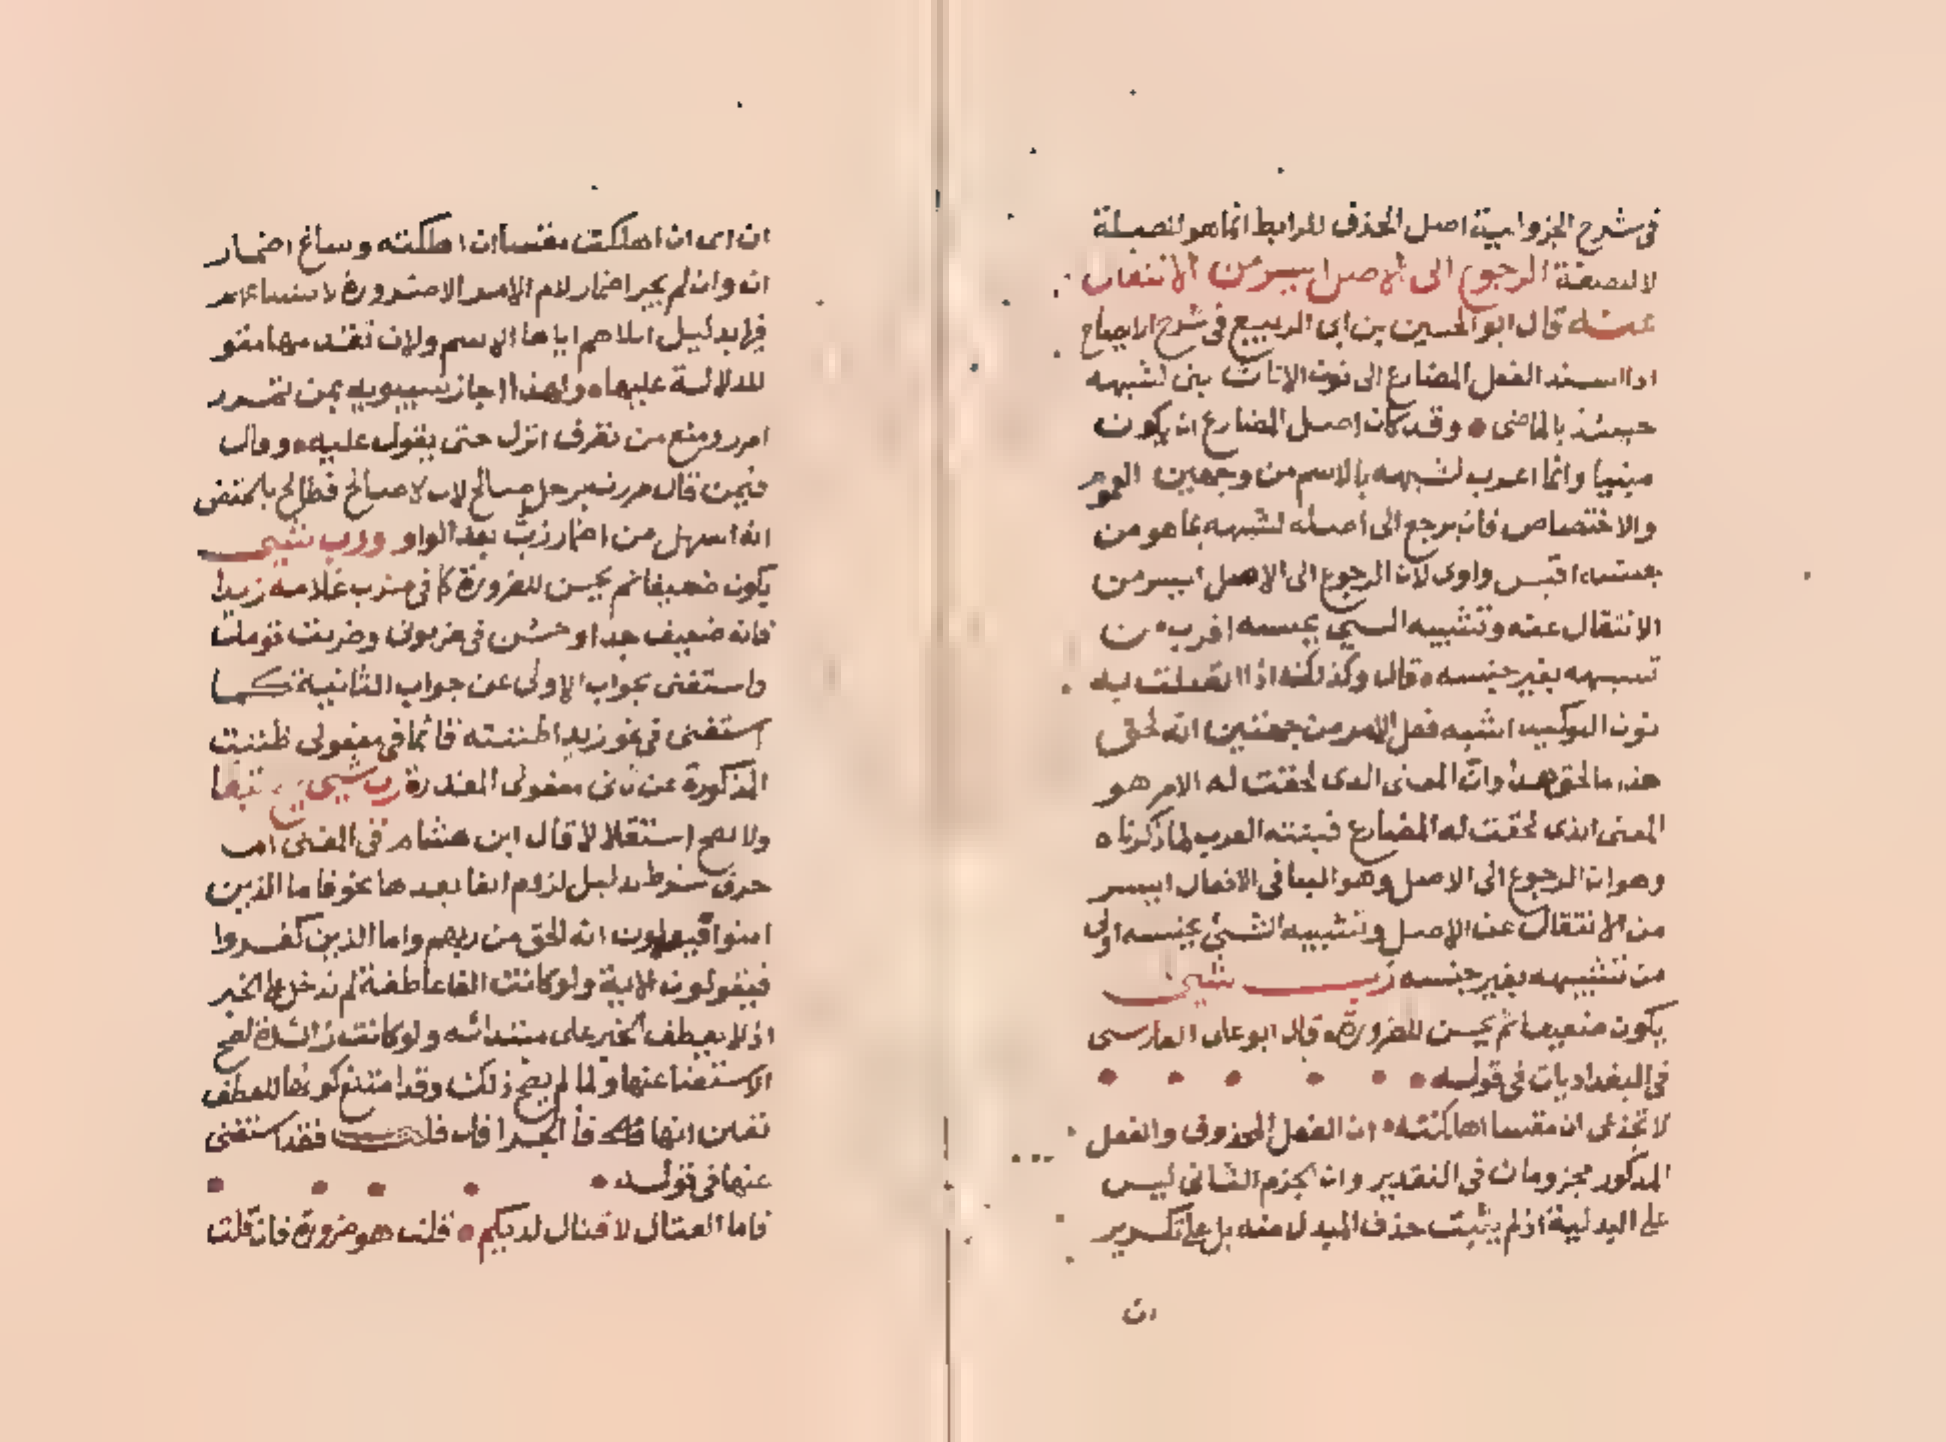 في شرح الجزولية اصل الحذف للرابط انما هو للصلة
لا للصفة الرجوع الى الاصل ايسر من الانتقال
عنه قال ابو الحسين بن ابي الربيع في شرح الايضاح
اذا اسند الفعل المضارع الى نون الاناث بني لشبهه
حينئذ بالماضي وقد كان اصل المضارع ان يكون
مبنيا وانما اعرب لشبهه بالاسم من وجهين العموم
والاختصاص فانه يرجع الى اصله لشبهه بما هو من
جنسه اقيس واولى لان الرجوع الى الاصل ايسر من
الانتقال عنه وتشبيه الشي بجنسه اقرب من
تشبيهه بغير جنسه قال وكذلك اذا اتصلت به
نون التوكيد اشبه فعل الامر من جهتين انه لحق
هذا ما لحق هذا وان المعنى الذي لحقت له الامر هو
المعنى الذي لحقت له المضارع فبنته العرب لما ذكرناه
وهو ان الرجوع الى الاصل وهو البنا في الافعال ايسر
من الانتقال عن الاصل وتشبيه الشي بجنسه اولى
من تشبيهه بغير جنسه رب شيي
يكون ضعيفا ثم يحسن للضرورة قال ابو علي الفارسي
في البغداديات في قوله
لا تجزعي ان منفسا اهلكته ان الفعل المحذوف والفعل
المذكور مجزومان في التقدير وان انجزم الثاني ليس
على البدلية اذ لم يثبت حذف المبدل منه بل على تكرير
ان
ان اي ان اهلكت منفسا ان اهلكته وساغ اضمار
ان وان لم يجز اضمار لام الامر الا ضرورة لاتساعهم
فيها بدليل ايلاهم اياها الاسم ولان تقدمها مقو
للدلالة عليها ولهذا اجاز سيبويه بمن تمرر
امرر ومنع من تضرب انزل حتى يقول عليه وقال
فيمن قال مررت برجل صالح لا صالح فطالح بالخفض
انه اسهل من اضمار رب بعد الواو ورب شيي
يكون ضعيفا ثم يحسن للضرورة كما في ضرب غلامه زيدا
فانه ضعيف جدا وحسن في ضربوني وضربت قومك
واستغنى بجواب الاولى عن جواب الثانية كما
استغنى في نحو زيدا ظننته قائما في مفعولي ظننت
المذكورة عن ثاني مفعولي المقدرة رب شيي يصح تبعا
ولا يصح استقلالا قال ابن هشام في المغني اما
حرف شرط بدليل لزوم الفا بعدها نحو فاما الذين
امنوا فيعلمون انه الحق من ربهم واما الذين كفروا
فيقولون الاية ولو كانت الفا عاطفة لم تدخل على الخبر
اذ لا يعطف الخبر على مبتدائه ولو كانت زائدة لصح
الاستغنا عنها ولما لم يصح ذلك وقد امتنع كونها للعطف
تعين انها فا الجزا فان قلت فقد استغنى
عنها في قوله
فاما القتال لا قتال لديكم قلت هو ضرورة فان قلت